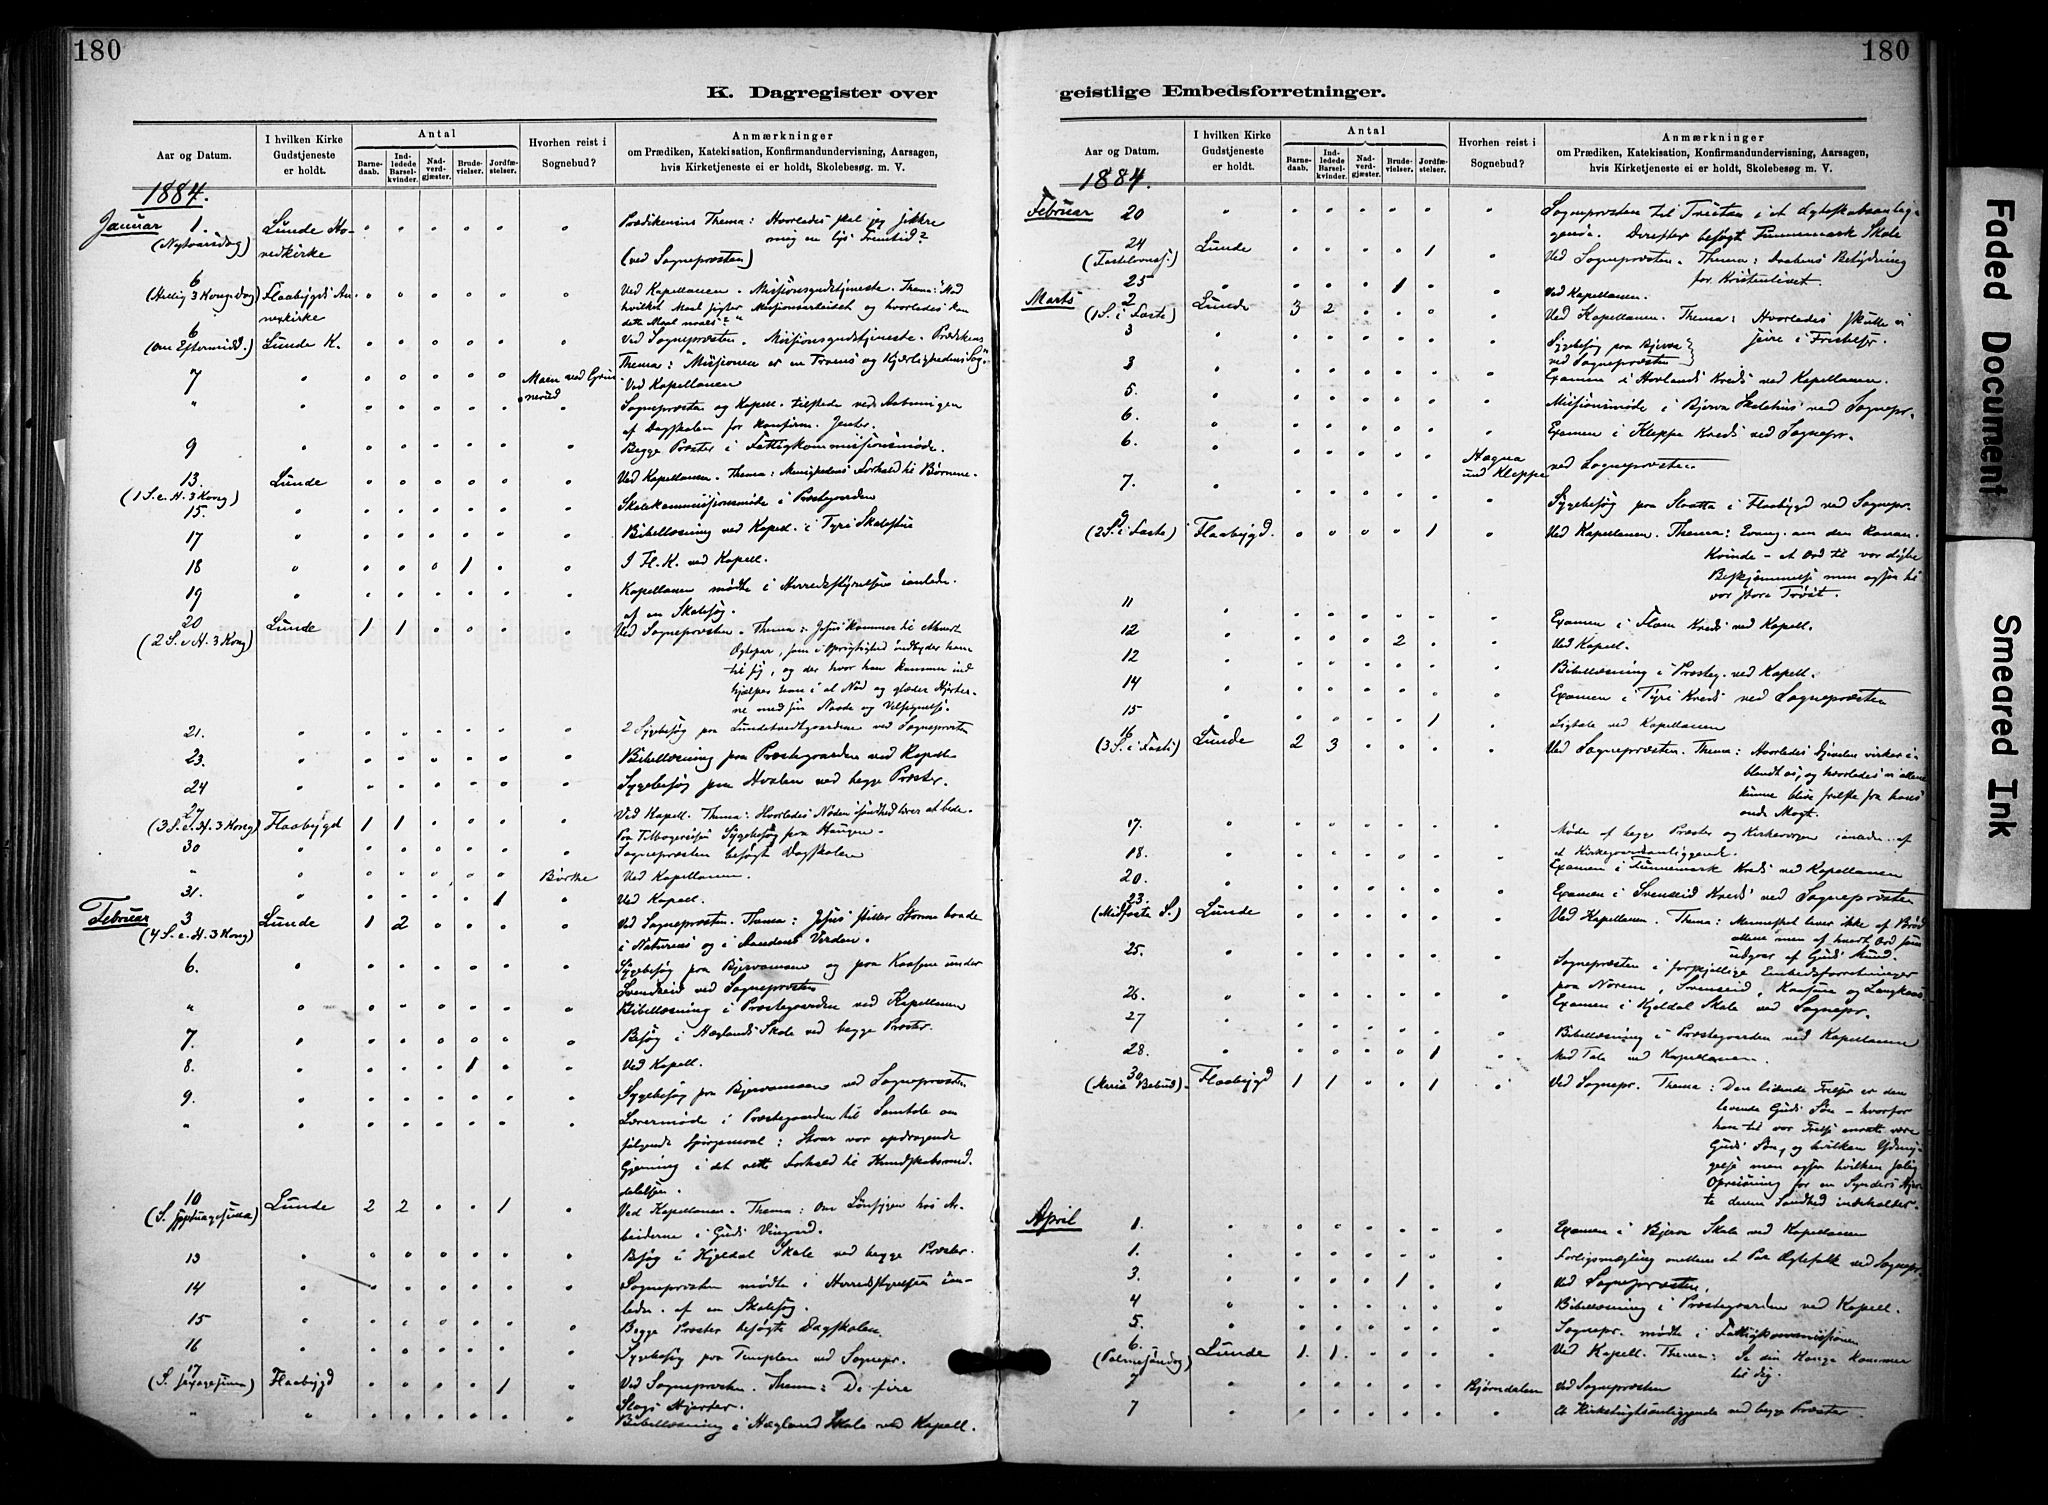 180
K. Dagregister over
Aar og Datum.
I hvilken Kirke Gudstjeneste er holdt.
Antal
Barne-daab.
Ind-ledede Barsel-kvinder.
Nad-verd-gjæster.
Brude-vielser.
Jordfæ-stelser.
Hvorhen reist i Sognebud?
Anmærkninger
om Prædiken, Katekisation, Konfirmandundervisning, Aarsagen,
hvis Kirketjeneste ei er holdt, Skolebesøg m. V.
1884.
Januar 1. Lunde Ho- Prædikenens Thema: Hvorledes skal jeg sikkre
(Nytaarsdag) vedkirke mig en lys Fremtid?
(ved Sognepræsten)
6 Ved Kapellanen. Missionsgudstjeneste. Thema:
(Hellig 3 Kongedag) Flaabygds An- hvilket Maal sigter Missionsarbeidet og hvorledes kan
nexkirke dette Maal naaes?"
6 Ved Sognepræsten. Missionsgudstjeneste. Prædikens
(om Eftermidd.) Lunde K. Thema: "Missionen er en Troens og Kjærlighedens Sag"
7 " Moen ved Ved Kapellanen
" Sognepræsten og Kapell. tilstede ved Aabningen
af Dagskolen for Konfirm. Jenter.
9 " Begge Præster i Fattigkommissionsmøde.
13. Lunde Ved Kapellanen. Thema: Menighedens Forhold til Børnene.
(1 S. e. H. 3 Kong)
15. " Skolekommissionsmøde i Præstegaarden
17 " Bibellæsning ved Kapell. i Tyri Skolestue
18 " 1 I Fl. K. ved Kapell.
19 " Kapellanen mødte i Herredsstyrelsen
af en Skolesag.
20 Lunde 1 1 Ved Sognepræsten. Thema: Jesus kommer til ethvert
(2 S. e. H. 3 Kong) Ægtepar, som i Oprigtighed indbyder ham
til sig, og der hvor han kommer ind
hjælper han i al Nød og glæder Hjerter-
ne med sin Naade og Velsignelse.
21. " 2 Sygebesøg paa Lundetvedtgaardene ved Sognepræsten
23. " Bibellæsning paa Præstegaarden ved Kapell.
24 " Sygebesøg paa Hvalen ved begge Præster.
27 Ved Kapell. Thema: Hvorledes Nøden lærer at bede.
(3 S. e. H. 3 Kong) Flaabygd 1 1 Sygebesøg paa Haugen.
30 " Sognepræsten besøgte Dagskolen
" Børke Ved Kapellanen.
31. " 1 Ved Kapell.
Februar 3 Lunde 1 2 Ved Sognepræsten. Thema: Jesus stiller Storme baade
(4 S. e. H. 3 Kong) i Naturens og i Aandens Verden.
6. " Sygebesøg paa Bjervamoen og paa Kaasene under
Svenseid ved Sognepræsten
" Bibellæsning i Præstegaarden ved Kapellanen
7. " Besøg i Hæglands Skole ved begge Præster.
8. " 1 Ved Kapell.
9. " Sygebesøg paa Bjervamoen ved Sognepræsten
" Lærermøde i Præstegaarden til Samtale om
følgende Spørgsmaal: Staar vor opdragende
Gjerning i det rette Forhold til Kundskabsmed-
delelsen.
10 Lunde 2 2 1 Ved Kapellanen. Thema: Om Lønsygen hos Ar-
(S. septuagesima) beiderne i Guds Vingaard.
13 " Besøg i Kjeldal Skole ved begge Præster.
14 " Sognepræsten mødte i Herredsstyrelsen
af en Skolesag.
15 " Begge Præster besøgte Dagskolen.
16 " Sygebesøg paa Templen ved Sognepr.
17 Flaabygd 1 Ved Sognepræsten. Thema: De fire
(S. sexagesima) Slags Hjerter.
" Bibellæsning i Hægland Skole ved Kapell.
180
geistlige Embedsforretninger.
Aar og Datum.
I hvilken Kirke Gudstjeneste er holdt.
Antal
Barne-daab.
Ind-ledede Barsel-kvinder.
Nad-verd-gjæster.
Brude-vielser.
Jordfæ-stelser.
Hvorhen reist i Sognebud?
Anmærkninger
om Prædiken, Katekisation, Konfirmandundervisning, Aarsagen,
hvis Kirketjeneste ei er holdt, Skolebesøg m. V.
1884.
Februar 20 Sognepræsten til
Derefter besøgt Tinnemark Skole
24 Lunde 1 Ved Sognepræsten. Thema: Daabens Betydning
(Fastelavnss.) for Kristenlivet.
25 " 1 Ved Kapellanen.
Marts 2 Lunde 3 2 Ved Kapellanen. Thema: Hvorledes skulle vi
(1 S. i Faste) seire i Fristelser.
3 " Sygebesøg paa Bjerva
ved Sognepræsten
3 " Examen i Hovlands Kreds ved Kapellanen.
5. " Missionsmøde i Bjerva Skolehus ved Sognepr.
6. " Examen i Kleppe Kreds ved Sognepr.
6. " Hægna und Kleppe ved Sognepræsten
7. " Sygebesøg paa Slaatta i Flaabygd ved Sognepr.
9 Flaabygd. 1 Ved Kapellanen. Thema: Evang. om den Kanan.
(2 S. i Faste) Kvinde - et Ord til vor dybe
Beskjæmmelse men ogsaa til
vor store Trøst.
11 " Examen i Flom Kreds ved Kapell.
12 " 2 Ved Kapell.
12 " Bibellæsning i Præsteg. ved Kapell.
14 " Examen i Tyri Kreds ved Sognepræsten
15 " 1 Ligtale ved Kapellanen
16 Lunde 2 3 Ved Sognepræsten. Thema: Hvorledes Djevelen virker i-
(3 S. i Faste) blandt os, og hvorledes vi alene
kunne blive frelste fra hans
onde Magt.
17. " Møde af begge Præster og Kirkeværgen
et Kirkegaardsanliggende.
18. " Examen i Tinnemark Kreds ved Kapellanen
20. " Examen i Svenseid Kreds ved Sognepræsten
23. Lunde Ved Kapellanen. Thema: Mennesket lever ikke af Brød
(Midfaste S.) alene men af hvert Ord som
udgaar af Guds Mund.
25. " Sognepræsten i forskjellige Embedsforretninger
paa Norem, Svenseid, Kaasene og Langkaas
26. " Examen i Kjeldal Skole ved Sognepr.
27 " Bibellæsning i Præstegaarden ved Kapellanen
28. " 1 Med Tale ved Kapellanen.
30 Flaabygd 1 1 1 Ved Sognepr. Thema: Den lidende Frelser er den
(Maria Bebud) levende Guds Søn - hvorfor
han til vor Frelse maatte være
Guds Søn, og hvilken Ydmy-
gelse men ogsaa hvilken salig
Opreisning for en Synders Hjer-
te denne Sandhed indeholder.
April 1. " Examen i Bjerva Skole ved Kapellanen
1. " Forligsmægling mellem et Par Ægtefolk ved Sognepr.
3. " 1 Ved Sognepræsten.
4 " Bibellæsning i Præstegaarden ved Kapell.
5. " Sognepr. mødte i Fattigkommissionen
6. Lunde 1. 1. Ved Kapell. Thema: Se din Konge kommer
(Palmesøndag) til dig.
7 " Bjørndalen ved Sognepræsten
7 " Et Kirketugtsanliggende ved begge Præster.
Faded Document
Smeared Ink